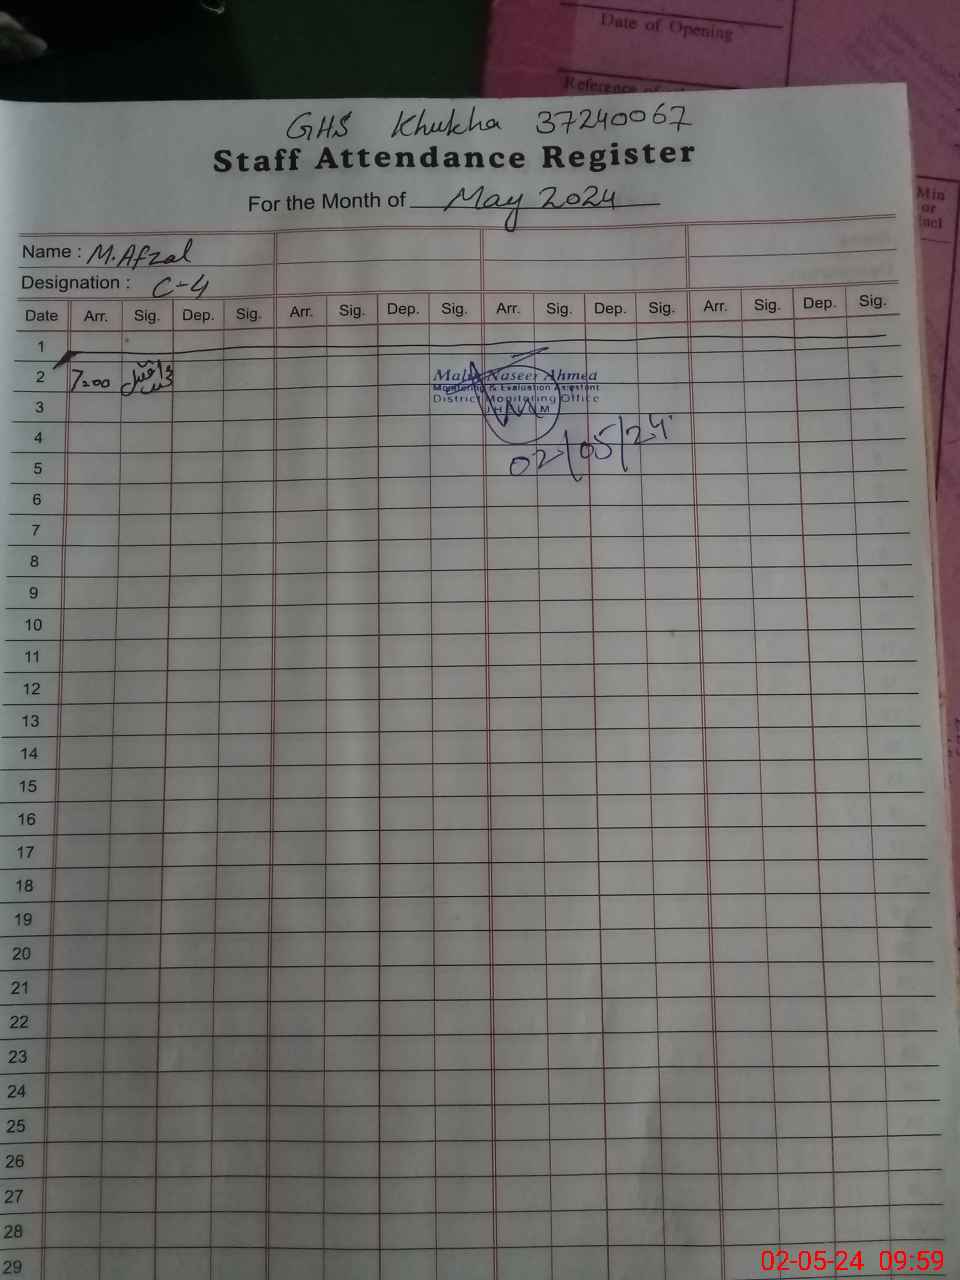 Date of Opening
Reference of
Min
or
GHS Khukha 37240067
Staff Attendance Register
For the Month of May 2024
Name : M. Afzal
Designation : C-4
Date Arr. Sig. Dep. Sig. Arr. Sig. Dep. Sig. Arr. Sig. Dep. Sig. Arr. Sig. Dep. Sig.
1
2 7=00
Naseer Ahmed
Monitoring & Evaluation Assistant
3
District Monitoring Office
4
02/05/24
5
6
7
8
9
10
11
12
13
14
15
16
17
18
19
20
21
22
23
24
25
26
27
28
29
02-05-24 09:59